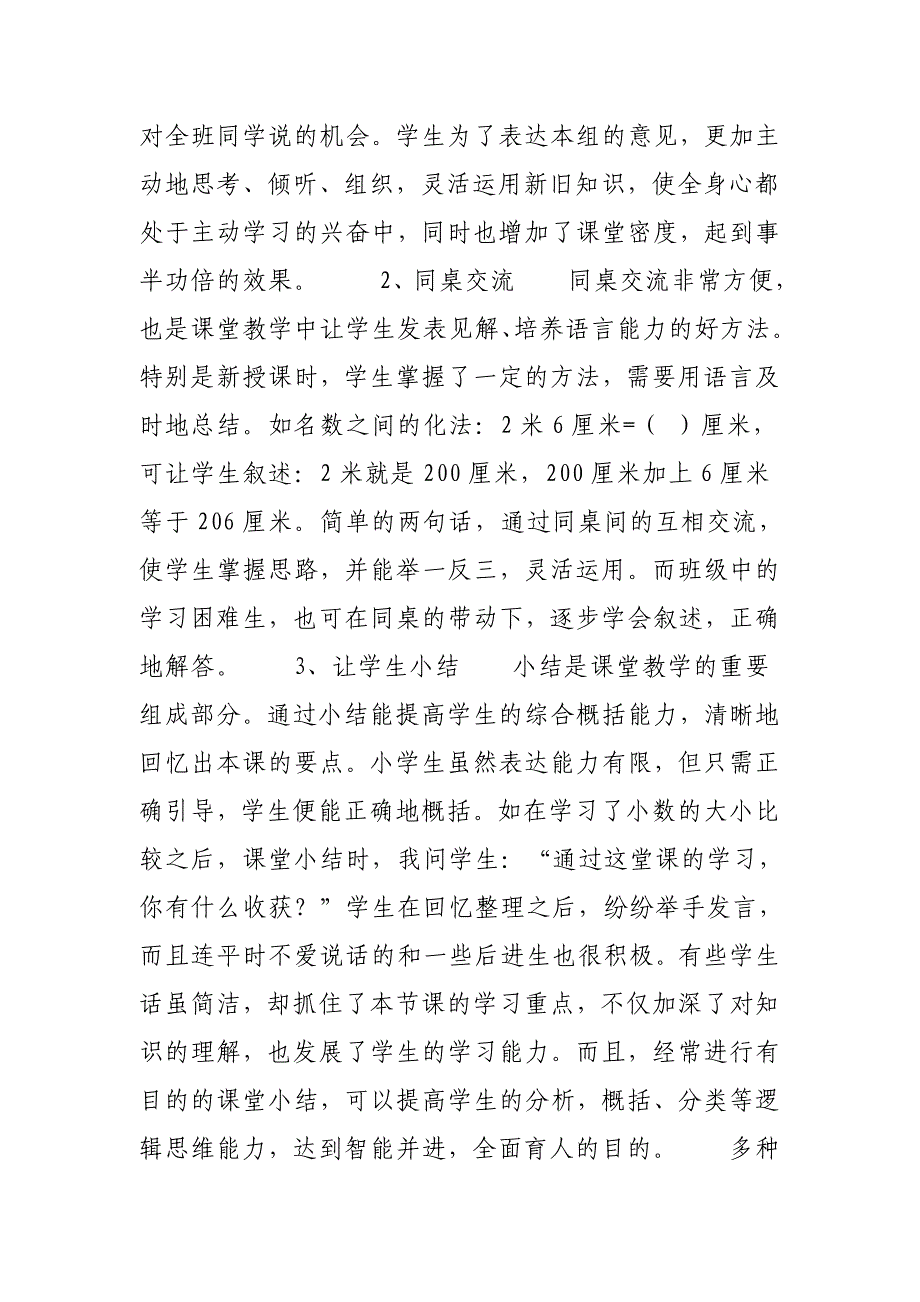 对全班同学说的机会。学生为了表达本组的意见，更加主
动地思考、倾听、组织，灵活运用新旧知识，使全身心都
处于主动学习的兴奋中，同时也增加了课堂密度，起到事
半功倍的效果。　　2、同桌交流　　同桌交流非常方便，
也是课堂教学中让学生发表见解、培养语言能力的好方法。
特别是新授课时，学生掌握了一定的方法，需要用语言及
时地总结。如名数之间的化法：2 米 6 厘米=（ ）厘米，
可让学生叙述：2 米就是 200 厘米，200 厘米加上 6 厘米
等于 206 厘米。简单的两句话，通过同桌间的互相交流，
使学生掌握思路，并能举一反三，灵活运用。而班级中的
学习困难生，也可在同桌的带动下，逐步学会叙述，正确
地解答。　　3、让学生小结　　小结是课堂教学的重要
组成部分。通过小结能提高学生的综合概括能力，清晰地
回忆出本课的要点。小学生虽然表达能力有限，但只需正
确引导，学生便能正确地概括。如在学习了小数的大小比
较之后，课堂小结时，我问学生：“通过这堂课的学习，
你有什么收获？”学生在回忆整理之后，纷纷举手发言，
而且连平时不爱说话的和一些后进生也很积极。有些学生
话虽简洁，却抓住了本节课的学习重点，不仅加深了对知
识的理解，也发展了学生的学习能力。而且，经常进行有
目的的课堂小结，可以提高学生的分析，概括、分类等逻
辑思维能力，达到智能并进，全面育人的目的。　　多种